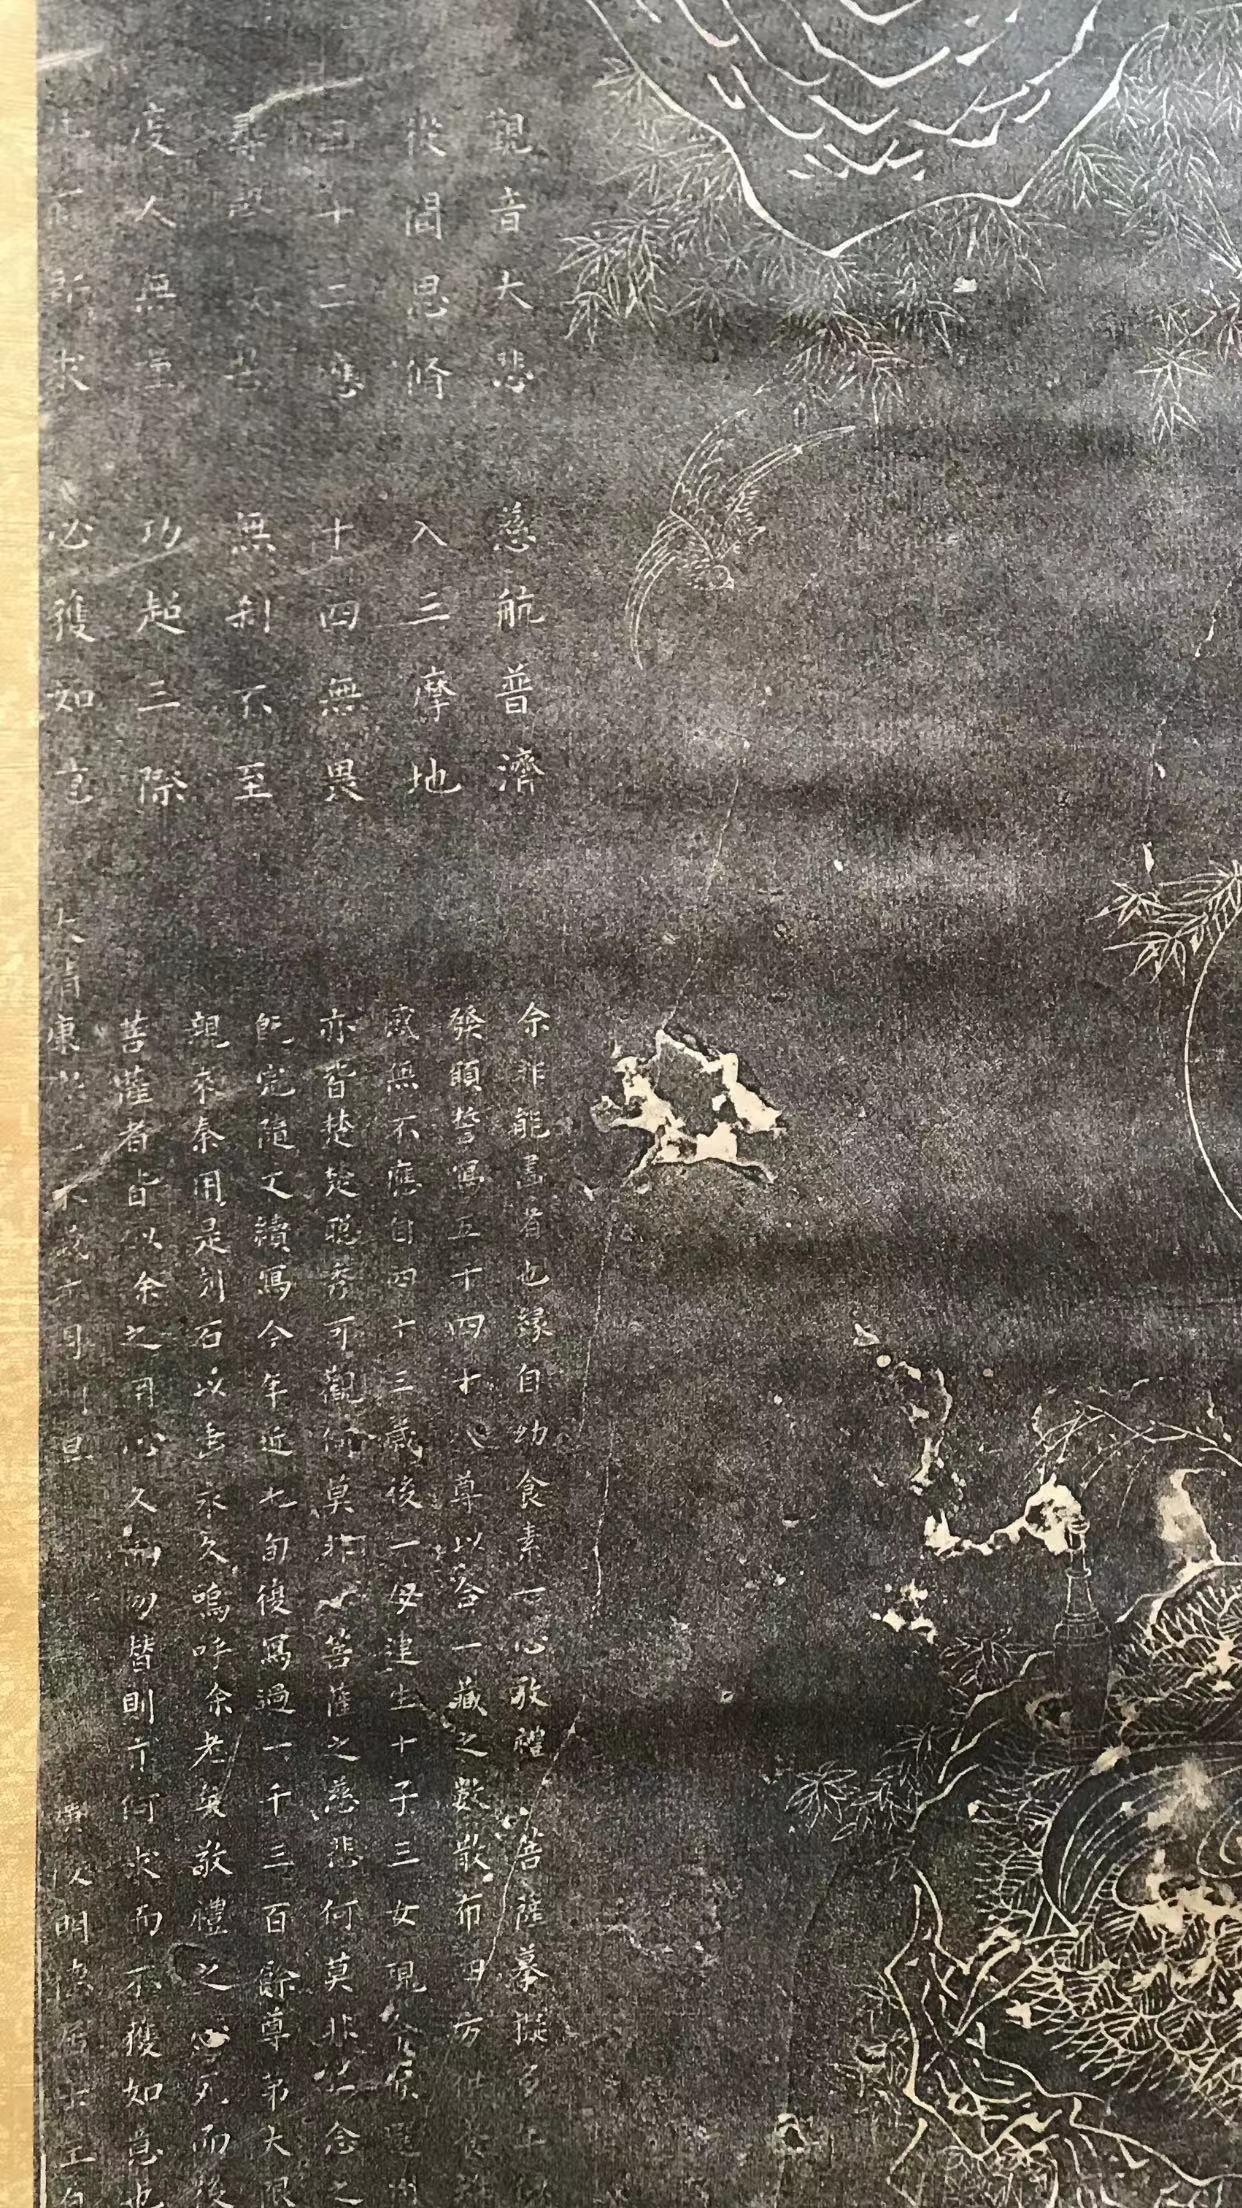 觀音大悲 慈航普濟
從聞思修 入三摩地
三十二應 十四無畏
尋聲救苦 無剎不至
度人無量 功超三際
凡有所求 必獲如意
余非能畫者也緣自幼食素一心敬禮菩薩摹擬
發願誓寫五千四十八尊以合一藏之數散布四方供養
感無不應自四十三歲後一母連生十子三女現
亦皆楚楚聰秀可觀何莫非菩薩之慈悲何莫非一念之
既完隨又續寫今年近七旬復寫過一千三百餘尊第大限
親來奉用是刻石以垂永久嗚呼余老矣敬禮之心死而後
菩薩者皆以余之用心久而勿替則亦何求而不獲如意也
大清康熙 月 旦 明 居士王